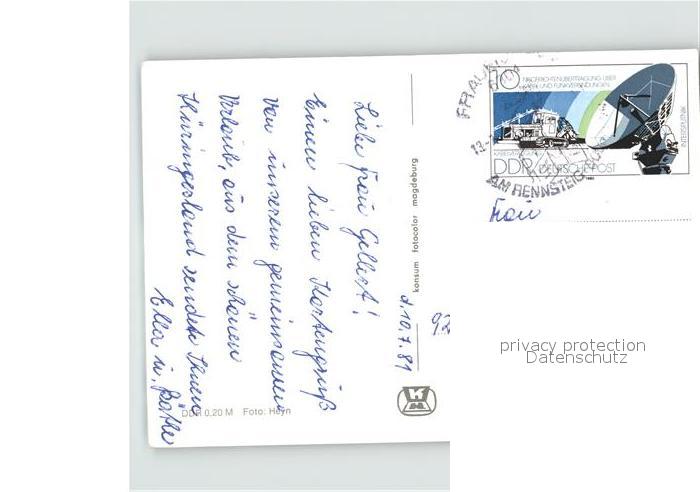 Liebe Frau Gellert!
Einen lieben Kartengruß
von unserem gemeinsamen
Urlaub, aus dem schönen
Thüringerland sendet Ihnen
Ella u.
d. 10.7.81
konsum fotocolor magdeburg
DDR 0,20 M Foto: Heyn
10
NACHRICHTENÜBERTRAGUNG ÜBER
KABEL UND FUNKVERBINDUNGEN
INTERSPUTNIK
DDR DEUTSCHE POST
AM RENNSTEIG
Frau
privacy protection
Datenschutz